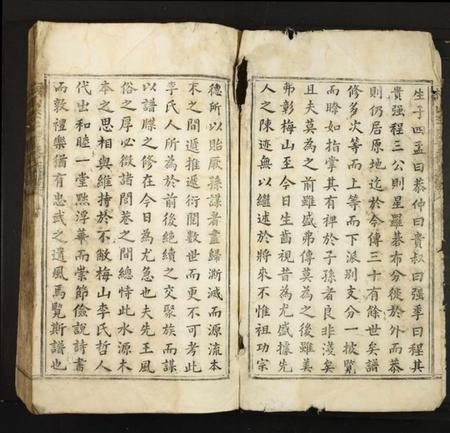 生子四孟曰恭仲曰貴叔曰强季曰程其
貴强程三公則星羅棊布分徙於外而恭
則仍居原地迄於今傳三十有餘世矣譜
修多次等而上等而下派別支分一披覽
而瞭如指掌其有裨於子孫者良非淺矣
且夫莫為之前雖盛弗傳莫為之後雖美
弗彰梅山至今日生齒視昔為尤盛據先
人之陳迹無以繼述於將來不惟祖功宗
德所以貽厥孫謀者盡歸澌滅而源流本
末之間遞推遞衍閱數世而更不可考此
李氏人所為於前後絕續之交聚族而謀
以譜牒之修在今日為尤急也夫先王風
俗之厚必徵諸閭巷之間總恃此水源木
本之思相與維持於不敝梅山李氏哲人
代出和睦一堂黜浮華而崇節儉說詩書
而敦禮樂猶有忠武之遺風焉覽斯譜也